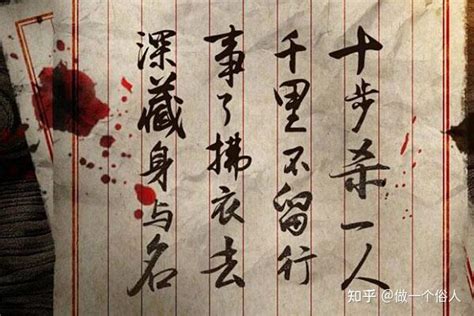 十步杀一人
千里不留行
事了拂衣去
深藏身与名
知乎 @做一个俗人